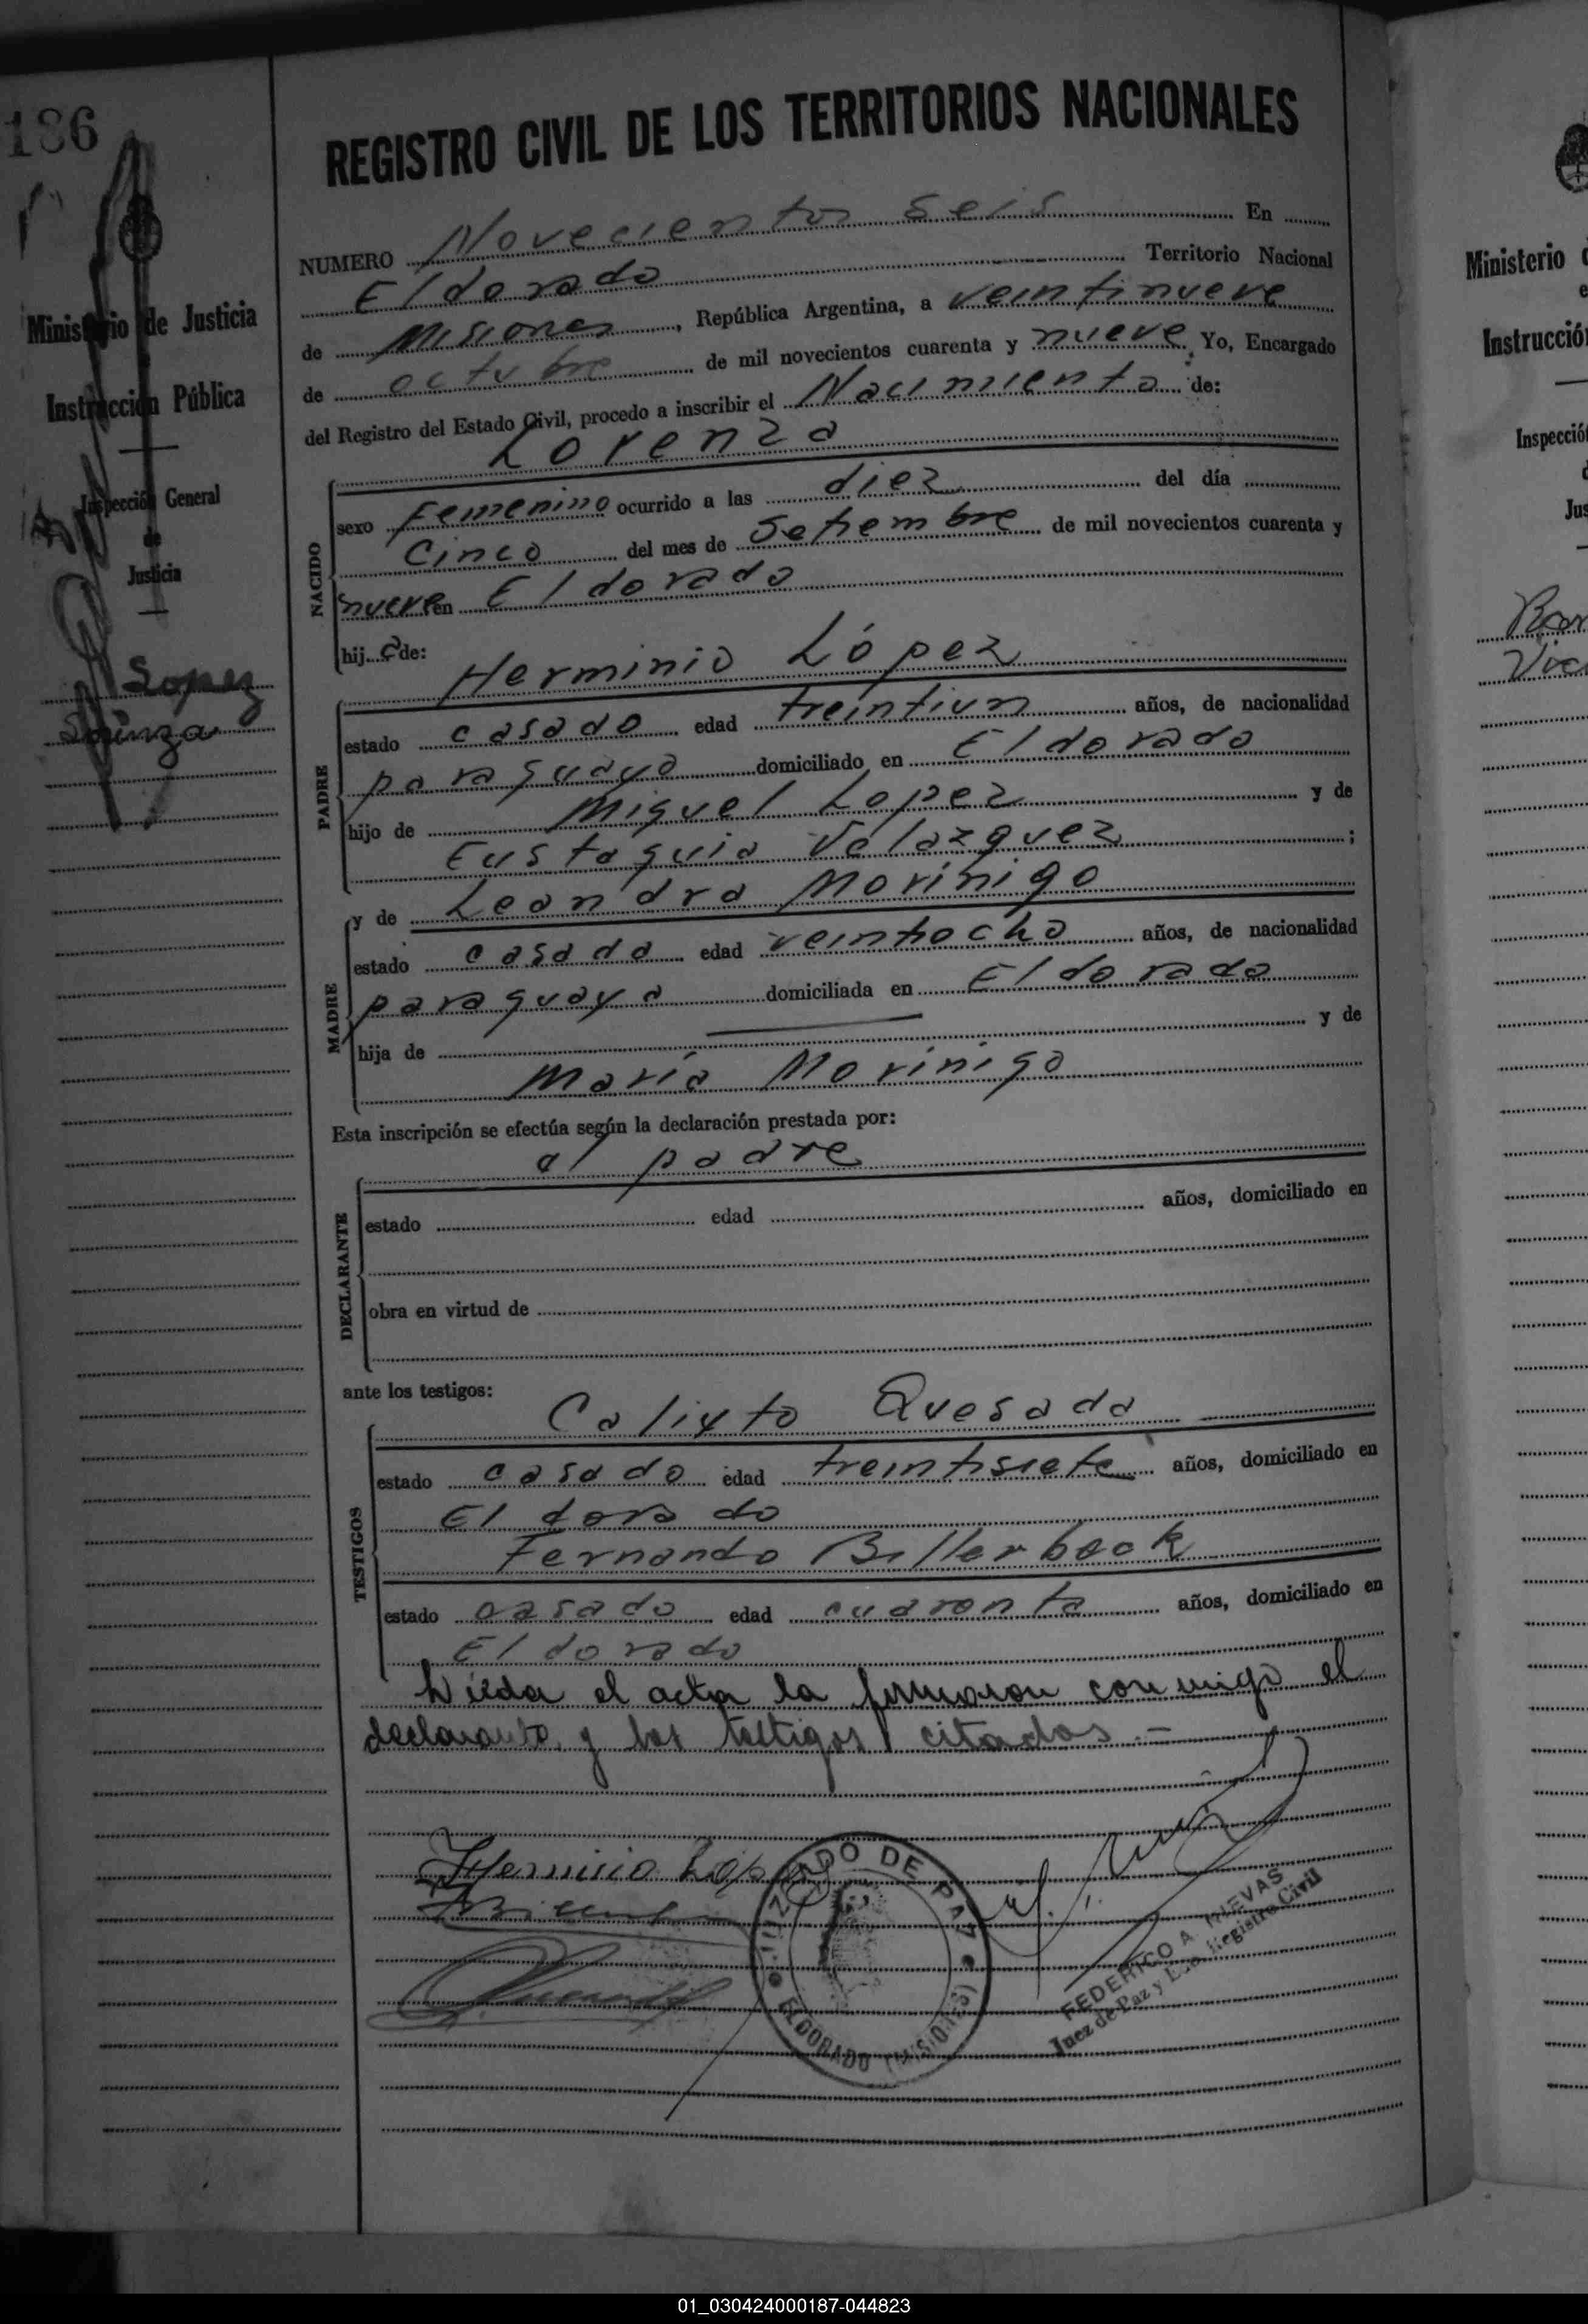 186
REGISTRO CIVIL DE LOS TERRITORIOS NACIONALES
NUMERO Novecientos seis En
Eldorado Territorio Nacional
de Misiones, República Argentina, a veintinueve
de octubre de mil novecientos cuarenta y nueve. Yo, Encargado
del Registro del Estado Civil, procedo a inscribir el Nacimiento de:
Lorenza
NACIDO
sexo Femenino ocurrido a las diez del día
Cinco del mes de Setiembre de mil novecientos cuarenta y
nueve en Eldorado
hij a de:
Herminio López
PADRE
estado casado edad treintiun años, de nacionalidad
paraguayo domiciliado en Eldorado
hijo de Miguel Lopez y de
Eustaquia Velazquez ;
MADRE
y de Leandra Morínigo
estado casada edad veintiocho años, de nacionalidad
paraguaya domiciliada en Eldorado
hija de y de
María Morinigo
Esta inscripción se efectúa según la declaración prestada por:
el padre
DECLARANTE
estado edad años, domiciliado en
obra en virtud de
ante los testigos:
Calixto Quesada
TESTIGOS
estado casado edad treintisiete años, domiciliado en
Eldorado
Fernando Billerbeck
estado casado edad cuarenta años, domiciliado en
Eldorado
Leída el acta la firmaron conmigo el
declarante y los testigos citados.—
Herminio López
JUZGADO DE PAZ
ELDORADO (MISIONES)
FEDERICO A. NIEVAS
Juez de Paz y Registro Civil
Ministerio de Justicia
e
Instrucción Pública
Inspección General
de
Justicia
Lopez
Lorenza
Ministerio
e
Instrucción
Inspección
Jus
01_030424000187-044823